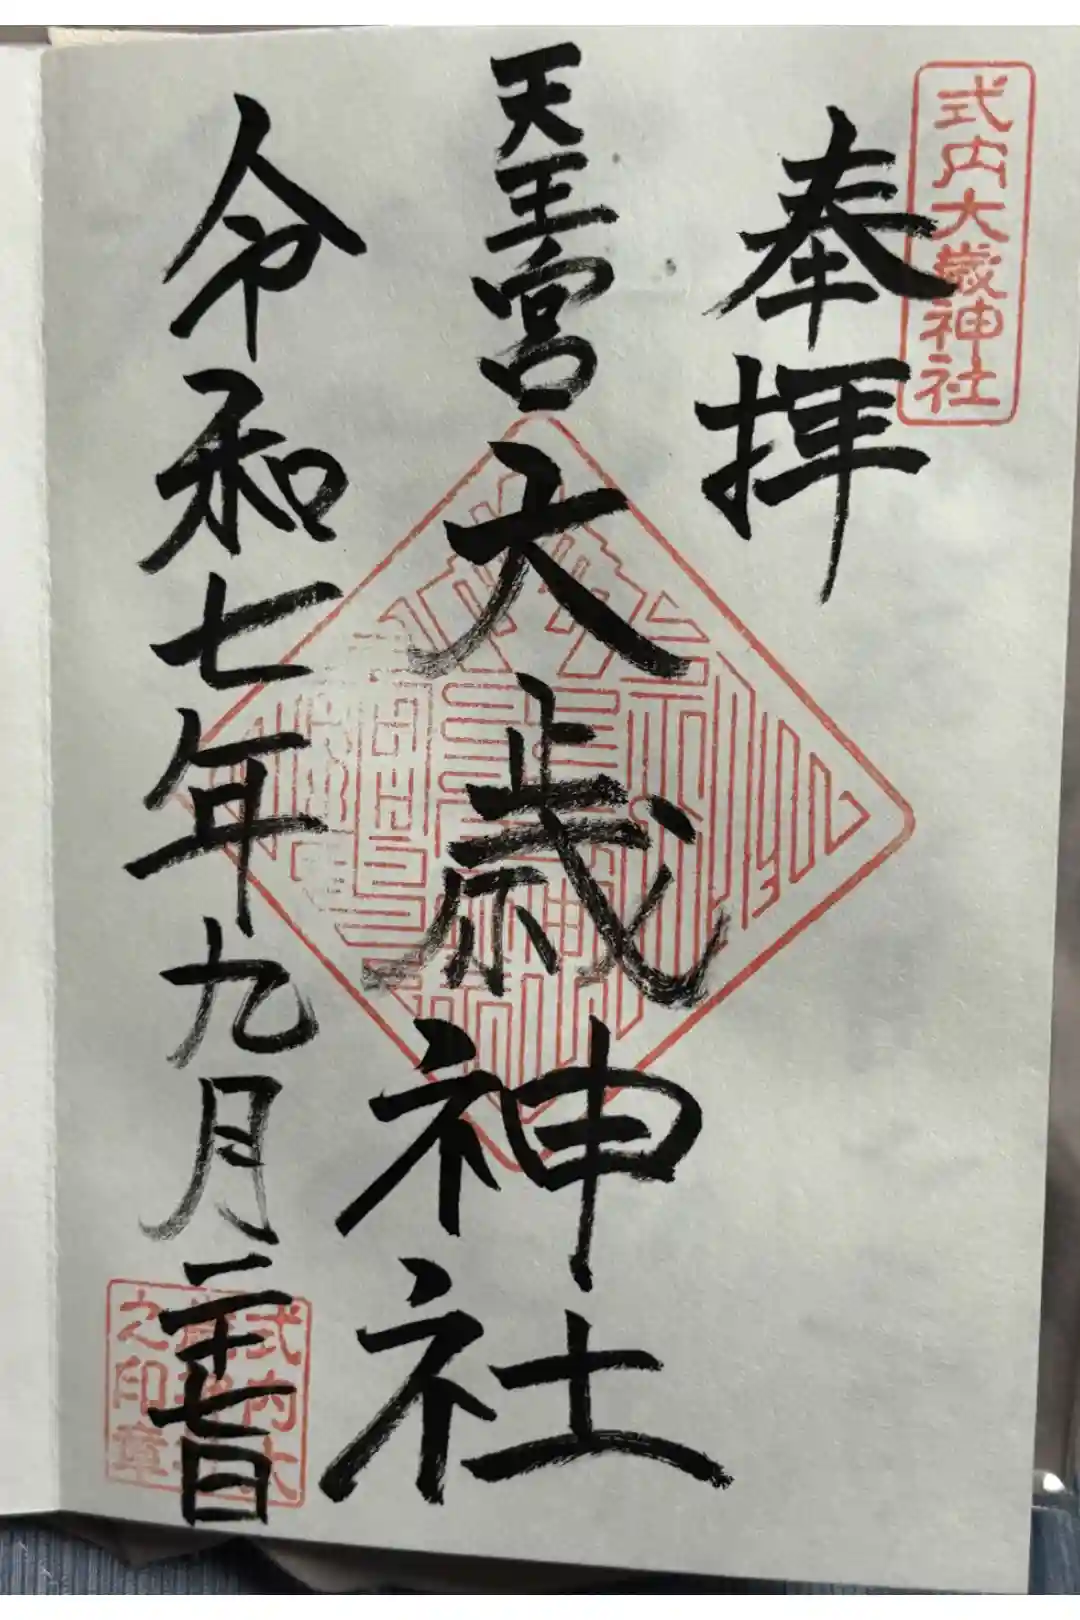 式内大歳神社
奉拝
天王宮大歳神社
令和七年九月二十七日
式内大
歳神社
之印章